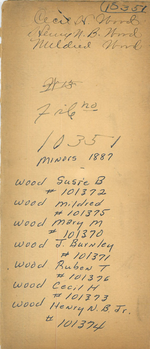 15351
Cecil H Wood
Henry N. B. Wood
Mildred Wood
File no
10351
MINORS 1887
Wood Susie B
# 101372
Wood Mildred
# 101375
Wood Mary M
# 101370
Wood J. Burnley
# 101371
Wood Ruben T
# 101376
Wood Cecil H
# 101373
Wood Henry N. B Jr.
# 101374